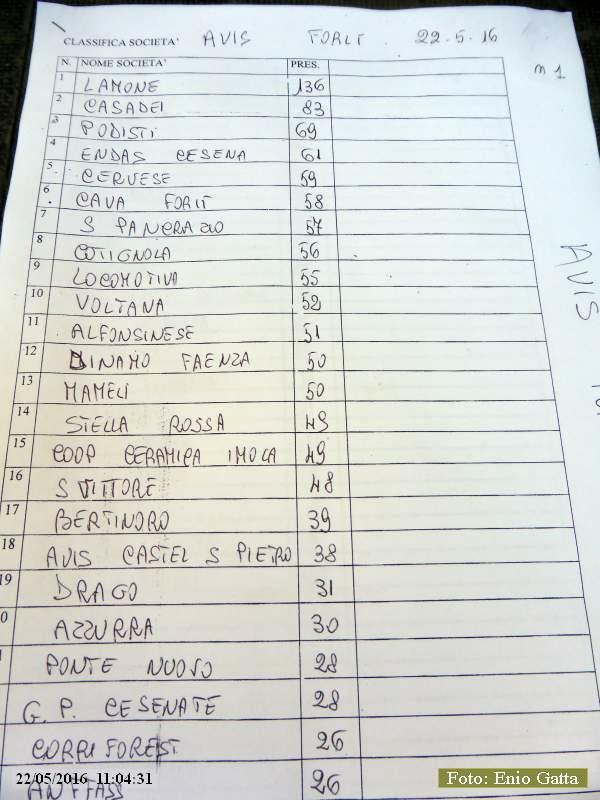 CLASSIFICA SOCIETA' AVIS FORLI 22.5.16
N. NOME SOCIETA' PRES.
m 1
1 LAMONE 136
2 CASADEI 83
3 PODISTI 69
4 ENDAS CESENA 61
5 CERVESE 59
6 CAVA FORLI 58
7 S PANCRAZIO 57
8 COTIGNOLA 56
9 LOCOMOTIVA 55
10 VOLTANA 52
11 ALFONSINESE 51
12 DINAMO FAENZA 50
13 MAMELI 50
14 STELLA ROSSA 49
15 COOP CERAMICA IMOLA 49
16 S VITTORE 48
17 BERTINORO 39
18 AVIS CASTEL S PIETRO 38
19 DRAGO 31
0 AZZURRA 30
PONTE NUOVO 28
G. P. CESENATE 28
CORRI FOREST 26
ANFFASS 26
AVIS
22/05/2016 11:04:31
Foto: Enio Gatta